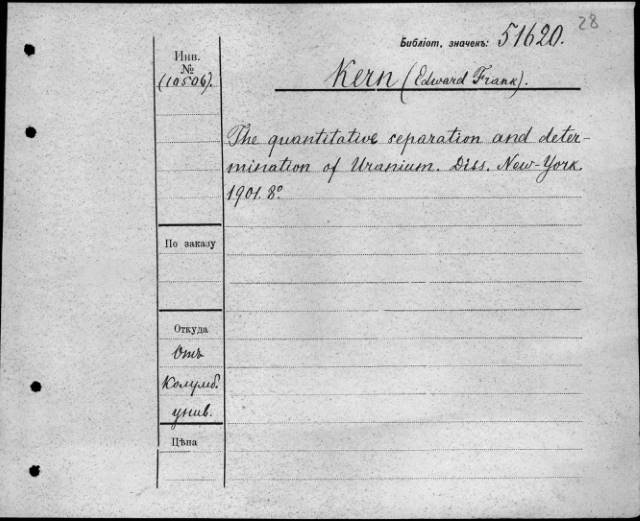 28
Библіот. значекъ: 51620.
Инв.
№
(10506).
Kern (Edward Frank).
The quantitative separation and deter-
mination of Uranium. Diss. New-York.
1901. 8º
По заказу
Откуда
Отъ
Колумб.
унив.
Цѣна